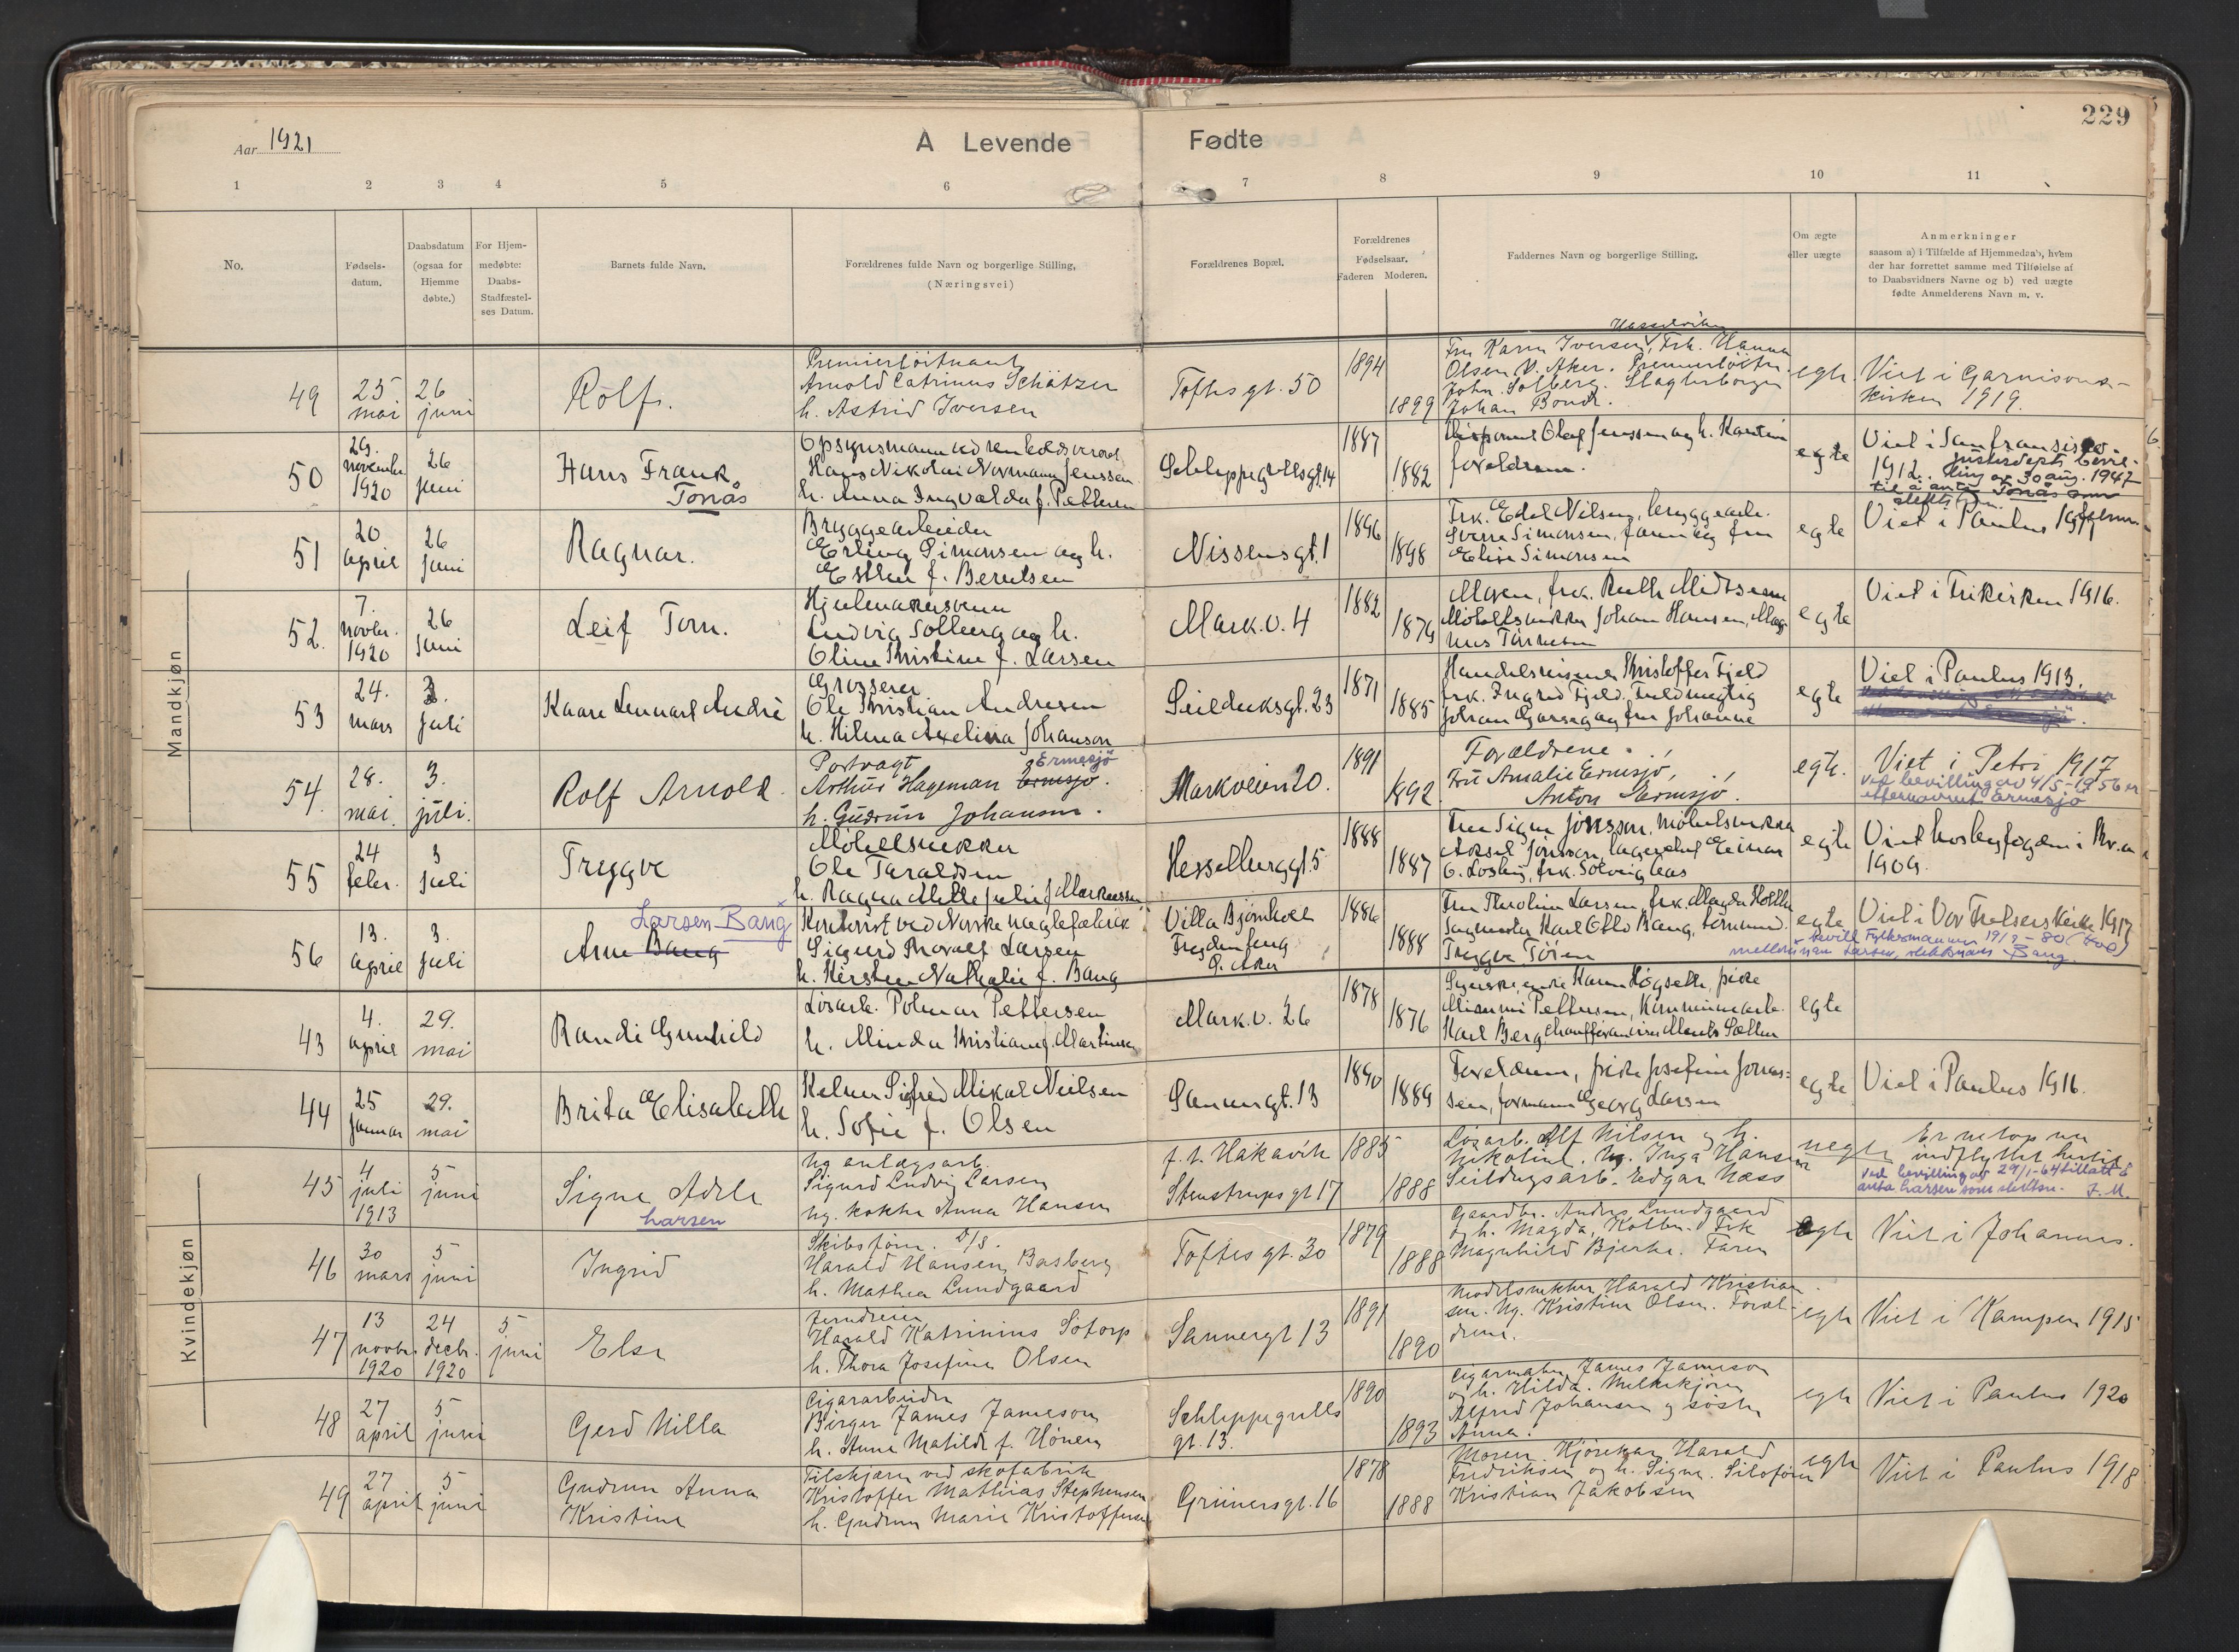 229
Aar 1921
A Levende Fødte
1 2 3 4 5 6 7 8 9 10 11
No.
Fødsels-
datum.
Daabsdatum
(ogsaa for
Hjemme
døbte.)
For Hjem-
medøbte:
Daabs-
Stadfæstel-
ses Datum.
Barnets fulde Navn.
Forældrenes fulde Navn og borgerlige Stilling.
(Næringsvei)
Forældrenes Bopæl.
Forældrenes
Fødselsaar.
Faderen Moderen.
Faddernes Navn og borgerlige Stilling.
Om ægte
eller uægte
Anmerkninger
saasom a) i Tilfælde af Hjemmedaab, hvem
der har forrettet samme med Tilføielse af
to Daabsvidners Navne og b) ved uægte
fødte Anmelderens Navn m. v.
Mandkjøn
49
25
mai
26
juni
Rolf.
Premierløitnant
Arnold Catrinus Schätzer
h. Astrid Iversen
Toftes gt. 50
1894
1899
Fru Karen Iversen, Frk. Hanna
Olsen V. Aker. Premierløitn.
John Solberg. Slagterborger
Johan Bonde.
egte
Viet i Garnisons-
kirken 1919.
50
29.
november
1920
26
juni
Hans Frank
Tonås
Opsynsmann ved renholdsverket
Hans Nikolai Normann Jenssen
h. Anna Ingvalda f. Pettersen
Schleppegrellsgt. 14
1887
1882
Disponent Olaf Jenssen og h.
foreldrene.
egte
Viet i San fransisco
1912. Justisdepts bevil-
ling av 30 aug. 1947
til å anta Tonås som
slektsnavn.
51
20
april
26
juni
Ragnar.
Bryggearbeider
Erling Simonsen og h.
Esther f. Berntsen
Nissensgt. 1
1896
1898
Frk. Edel Nilsen, bryggearb.
Sverre Simonsen, faren og fru
Elise Simonsen
egte
Viet i Paulus
52.
7.
novbr.
1920
26
juni
Leif Torn.
Hjulmakersvenn
Ludvig Solberg og h.
Oline Kristine f. Larsen
Mark.v. 4
1882
1879
Moren, frk. Ruth
Møbelsnekker Johan Hansen, Mag-
nus
egte
Viet i Frikirken 1916.
53
24.
mars
3.
juli
Kaare Lennart André
Grosserer
Ole Kristian Andresen
h. Hilma Axelina Johanson
Seilduksgt. 23
1871
1885
Handelsreisende Kristoffer Fjeld
frk. Ingrid Fjeld. Fuldmegtig
Johan og fru Johanne
egte
Viet i Paulus 1913.
54.
28.
mai.
3.
juli.
Rolf Arnold
Portvagt
Ermesjø
Arthur Hageman Ermsjø.
h. Gudrun Johansen.
Markveien 20.
1891
1892
Forældrene.
Fru Amalie Ermsjø,
Anton Ermsjø.
egte.
Viet i Petri 1917
ved bevilling av 4/5-1956 er
etternavnet Ermesjø
55
24
febr.
3
juli
Trygve
Møbelsnekker
Ole Taraldsen
h. Ragna Mille Julie f. Markussen
Hesselberggt. 5
1888
1887
Fru Signe Jonsson, møbelsnekker
Aksel Jonsson, lagerchef Einar
G. Losby, frk. Solveig Aas
egte
Viet hos byfogden i Kr.a
1909.
56
13.
april
3.
juli
Larsen Bang
Arne Bang
Kontorist ved Norske
Sigurd Thorolf Larsen
h. Kirsten Nathalie f. Bang
Villa Bjørnholt
Frydenberg
Ø. Aker
1886
1888
Fru Karoline Larsen, frk. Magda
Karl Otto Bang,
Trygve
egte
Viet i Vor Frelsers Kirke 1917
bevill. Fylkesmannen 19/2-80
mellomnavn Larsen, slektsnavn Bang.
Kvindekjøn
43
4.
april
29.
mai
Randi Gunhild
Løsarb. Polmar Pettersen
h. Minda Kristiane f. Martinsen
Mark.v. 26
1878
1876
Karen Høgseth, pike
Pettersen,
Karl Berg
egte
44
25
januar
29.
mai
Brita Elisabeth
Kelner Sigfred Mikal Nielsen
h. Sofie f. Olsen
Sannergt. 13
1890
1889
Foreldrene, pike Josefine Jonas-
sen, formann Georg Larsen
egte
Viet i Paulus 1916.
45
4
juli
1913
5
juni
Signe Adele
Larsen
Ug. anlægsarb.
Sigurd Ludvig Larsen
ug. kokke Anna Hansen
f. t. Hakavik
Stenstrups gt 17
1885
1888
Løsarb. Alf Nilsen og h.
Nikoline. Ug. Inga Hansen
Seildugsarb. Edgar Næss
uegte
Er netop nu
indflyttet hertil
ved bevilling av 29/1-64 tillatt å
anta Larsen som slektsn. J. M.
46
30
mars
5
juni
Ingrid
Skibsfører D/S.
Harald Hansen Basberg
h. Mathea Lundgaard
Toftes gt. 30
1879
1888
Gaardbr. Anders Lundgaard
og h. Magda, Kolbu. Frk
Magnhild Bjerke. Faren
egte
Viet i Johannes.
47
13
novbr.
1920
24
decbr.
1920
5
juni
Else
Jerndreier
Harald Katrinius Sotorp
h. Thora Josefine Olsen
Sannergt 13
1891
1890
Modelsnekker Harald Kristian-
sen. Ug. Kristine Olsen. Foræl-
drene.
egte
Viet i Kampen 1915
48
27
april
5
juni
Gerd Milla
Cigararbeider
Birger James Jameson
h. Anna Matilde f. Hønen
Schleppegrells
gt. 13.
1890
1893
Cigarmaker James Jameson
og h. Hilda.
Alfred Johansen og søster
Anna.
egte
Viet i Paulus 1920
49
27
april
5
juni
Gudrun Anna
Kristine
Tilskjærer ved skofabrik
Kristoffer Mathias Stephensen
h. Gudrun Marie Kristoffersen
Grünersgt. 16
1878
1888
Moren. Kjørekar Harald
Fredriksen og h. Signe.
Kristian Jakobsen
egte
Viet i Paulus 1918